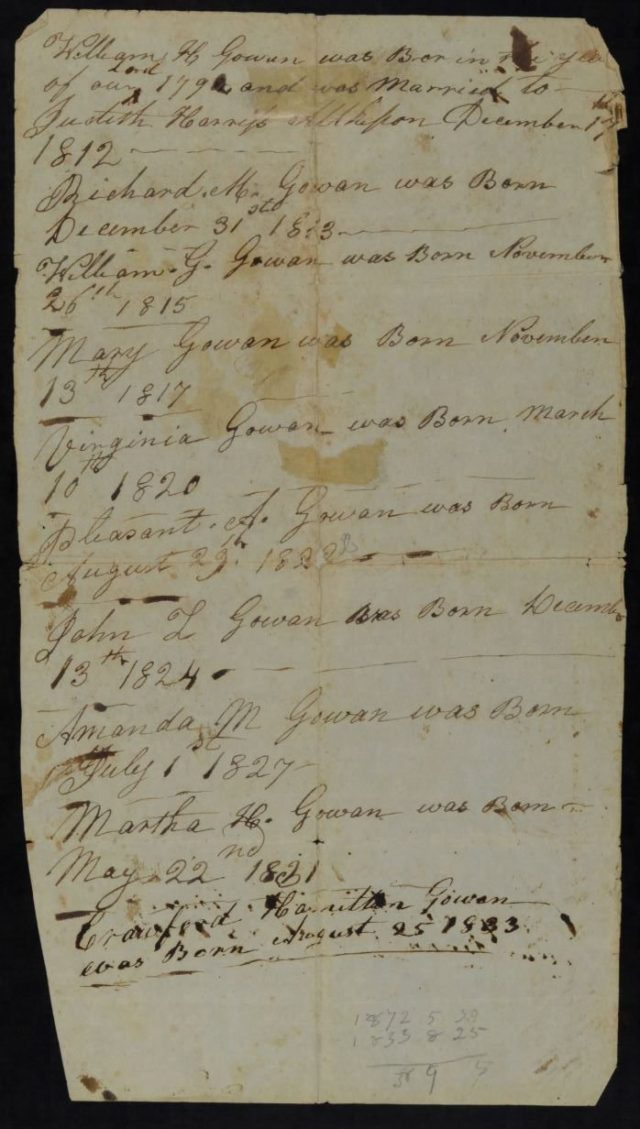 William H Gowan was Bor in the year
of our 1792 and was Married to
2nd
Judith Harris December 17th
1812
Richard. M. Gowan was Born
December 31st 1813
William. G. Gowan was Born November
26th 1815
Mary Gowan was Born November
13th 1817
Virginia Gowan was Born March
10th 1820
Pleasant. A. Gowan was Born
August 29th 1822
John Z Gowan was Born Decembr
13th 1824
Amanda M Gowan was Born
July 1st 1827
Martha H. Gowan was Born
May 22nd 1831
Crawford Hamilton Gowan
was Born August 25 1833
1872 5
1833 8 25
38 9